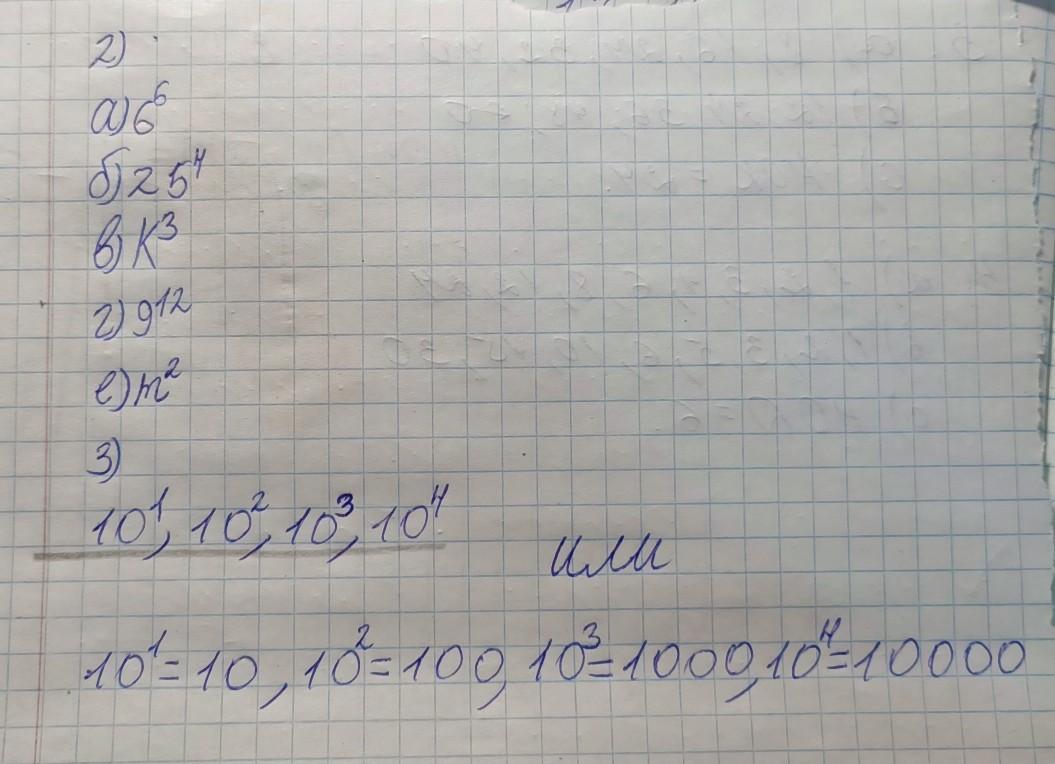 2)
а) 6⁶
б) 25⁴
в) К³
г) 9¹²
е) m²
3)
10¹, 10², 10³, 10⁴
или
10¹=10, 10²=100, 10³=1000, 10⁴=10000